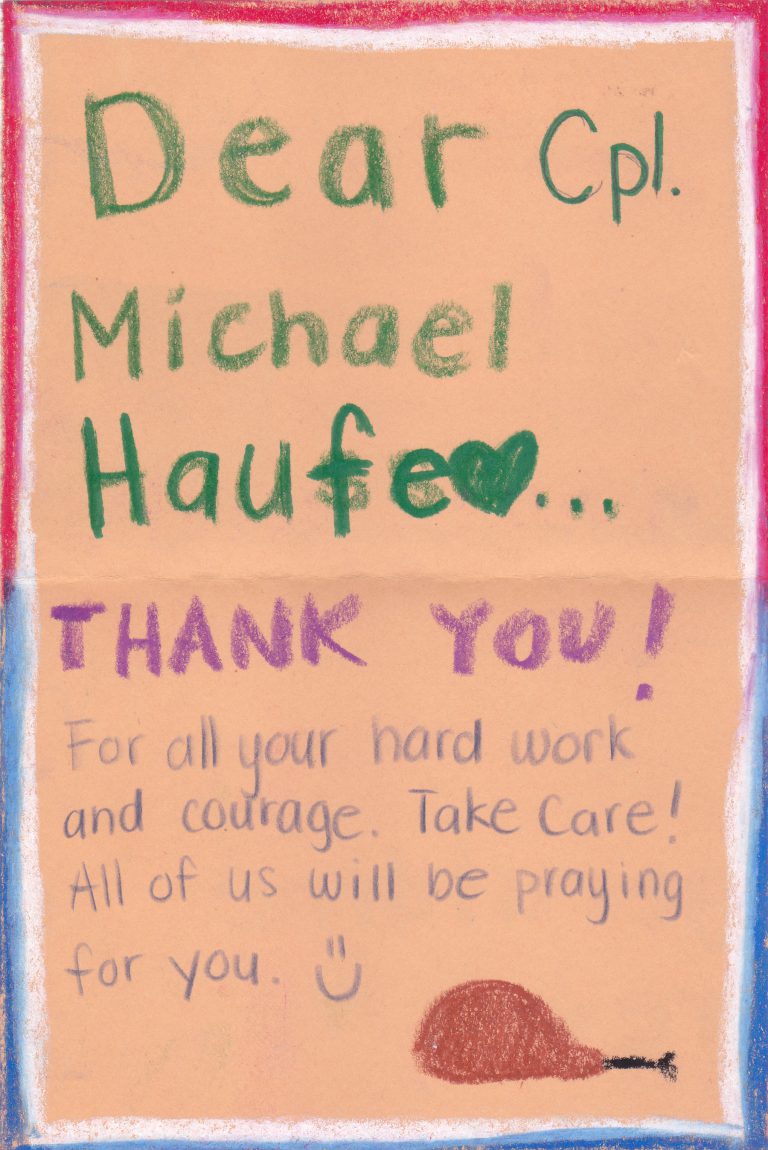 Dear Cpl.
Michael
Haufe♥...
THANK YOU!
For all your hard work
and courage. Take Care!
All of us will be praying
for you. :)